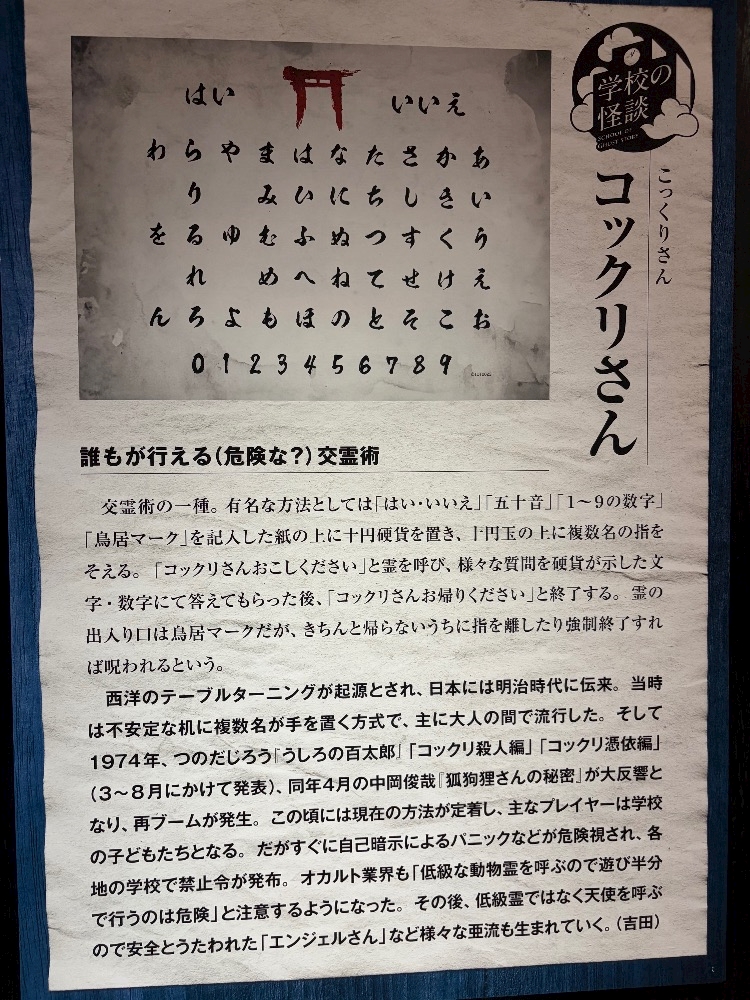 学校の
怪談
SCHOOL OF
GHOST STORY
こっくりさん
コックリさん
はい
いいえ
わらやまはなたさかあ
りみひにちしきい
をるゆむふぬつすくう
れめへねてせけえ
んろよもほのとそこお
0 1 2 3 4 5 6 7 8 9
誰もが行える(危険な?)交霊術
交霊術の一種。有名な方法としては「はい・いいえ」「五十音」「1〜9の数字」
「鳥居マーク」を記入した紙の上に十円硬貨を置き、十円玉の上に複数名の指を
そえる。「コックリさんおこしください」と霊を呼び、様々な質問を硬貨が示した文
字・数字にて答えてもらった後、「コックリさんお帰りください」と終了する。霊の
出入り口は鳥居マークだが、きちんと帰らないうちに指を離したり強制終了すれ
ば呪われるという。
西洋のテーブルターニングが起源とされ、日本には明治時代に伝来。当時
は不安定な机に複数名が手を置く方式で、主に大人の間で流行した。そして
1974年、つのだじろう『うしろの百太郎』「コックリ殺人編」「コックリ憑依編」
(3〜8月にかけて発表)、同年4月の中岡俊哉『狐狗狸さんの秘密』が大反響と
なり、再ブームが発生。この頃には現在の方法が定着し、主なプレイヤーは学校
の子どもたちとなる。だがすぐに自己暗示によるパニックなどが危険視され、各
地の学校で禁止令が発布。オカルト業界も「低級な動物霊を呼ぶので遊び半分
で行うのは危険」と注意するようになった。その後、低級霊ではなく天使を呼ぶ
ので安全とうたわれた「エンジェルさん」など様々な亜流も生まれていく。(吉田)